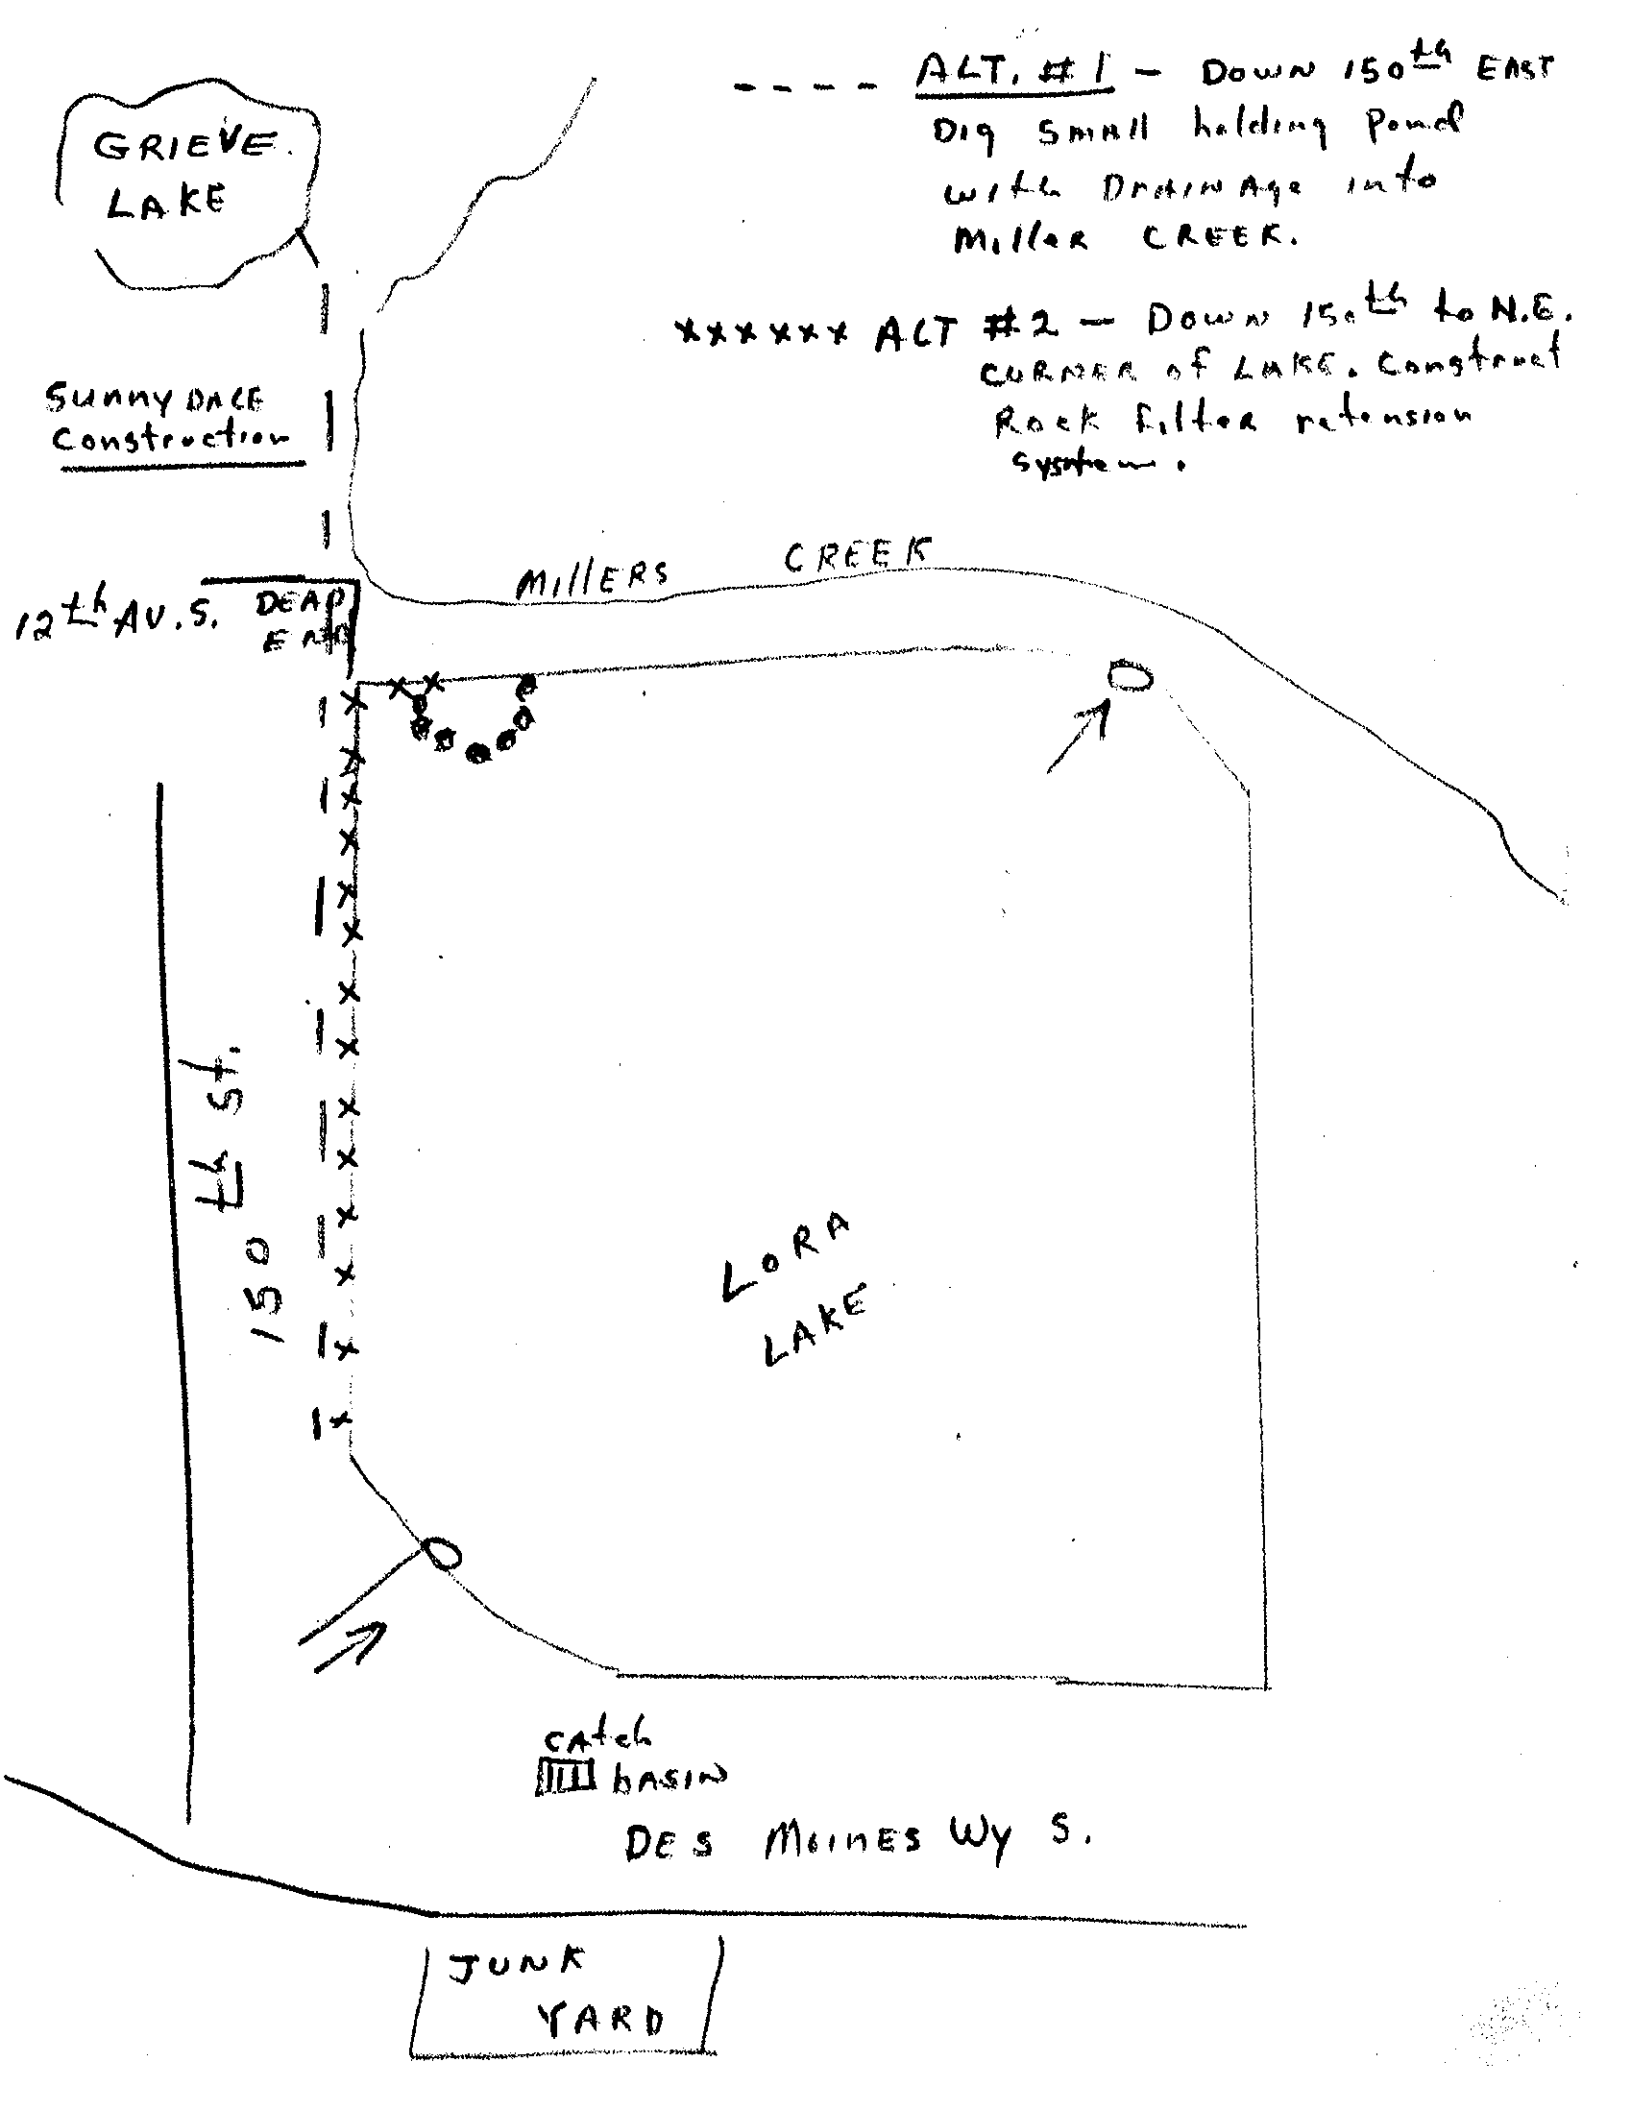 ---- ALT. #1 - DOWN 150th EAST
Dig small holding pond
with DRAINAge into
Miller CREEK.
xxxxxx ALT #2 - DOWN 150th to N.E.
CORNER of LAKE. Construct
Rock filter retension
system.
GRIEVE
LAKE
SunnyDALE
Construction
MillERS CREEK
12th AV. S.
DEAD
END
150th St.
LORA
LAKE
CAtch
bASIN
DES MOINES Wy S.
JUNK
YARD